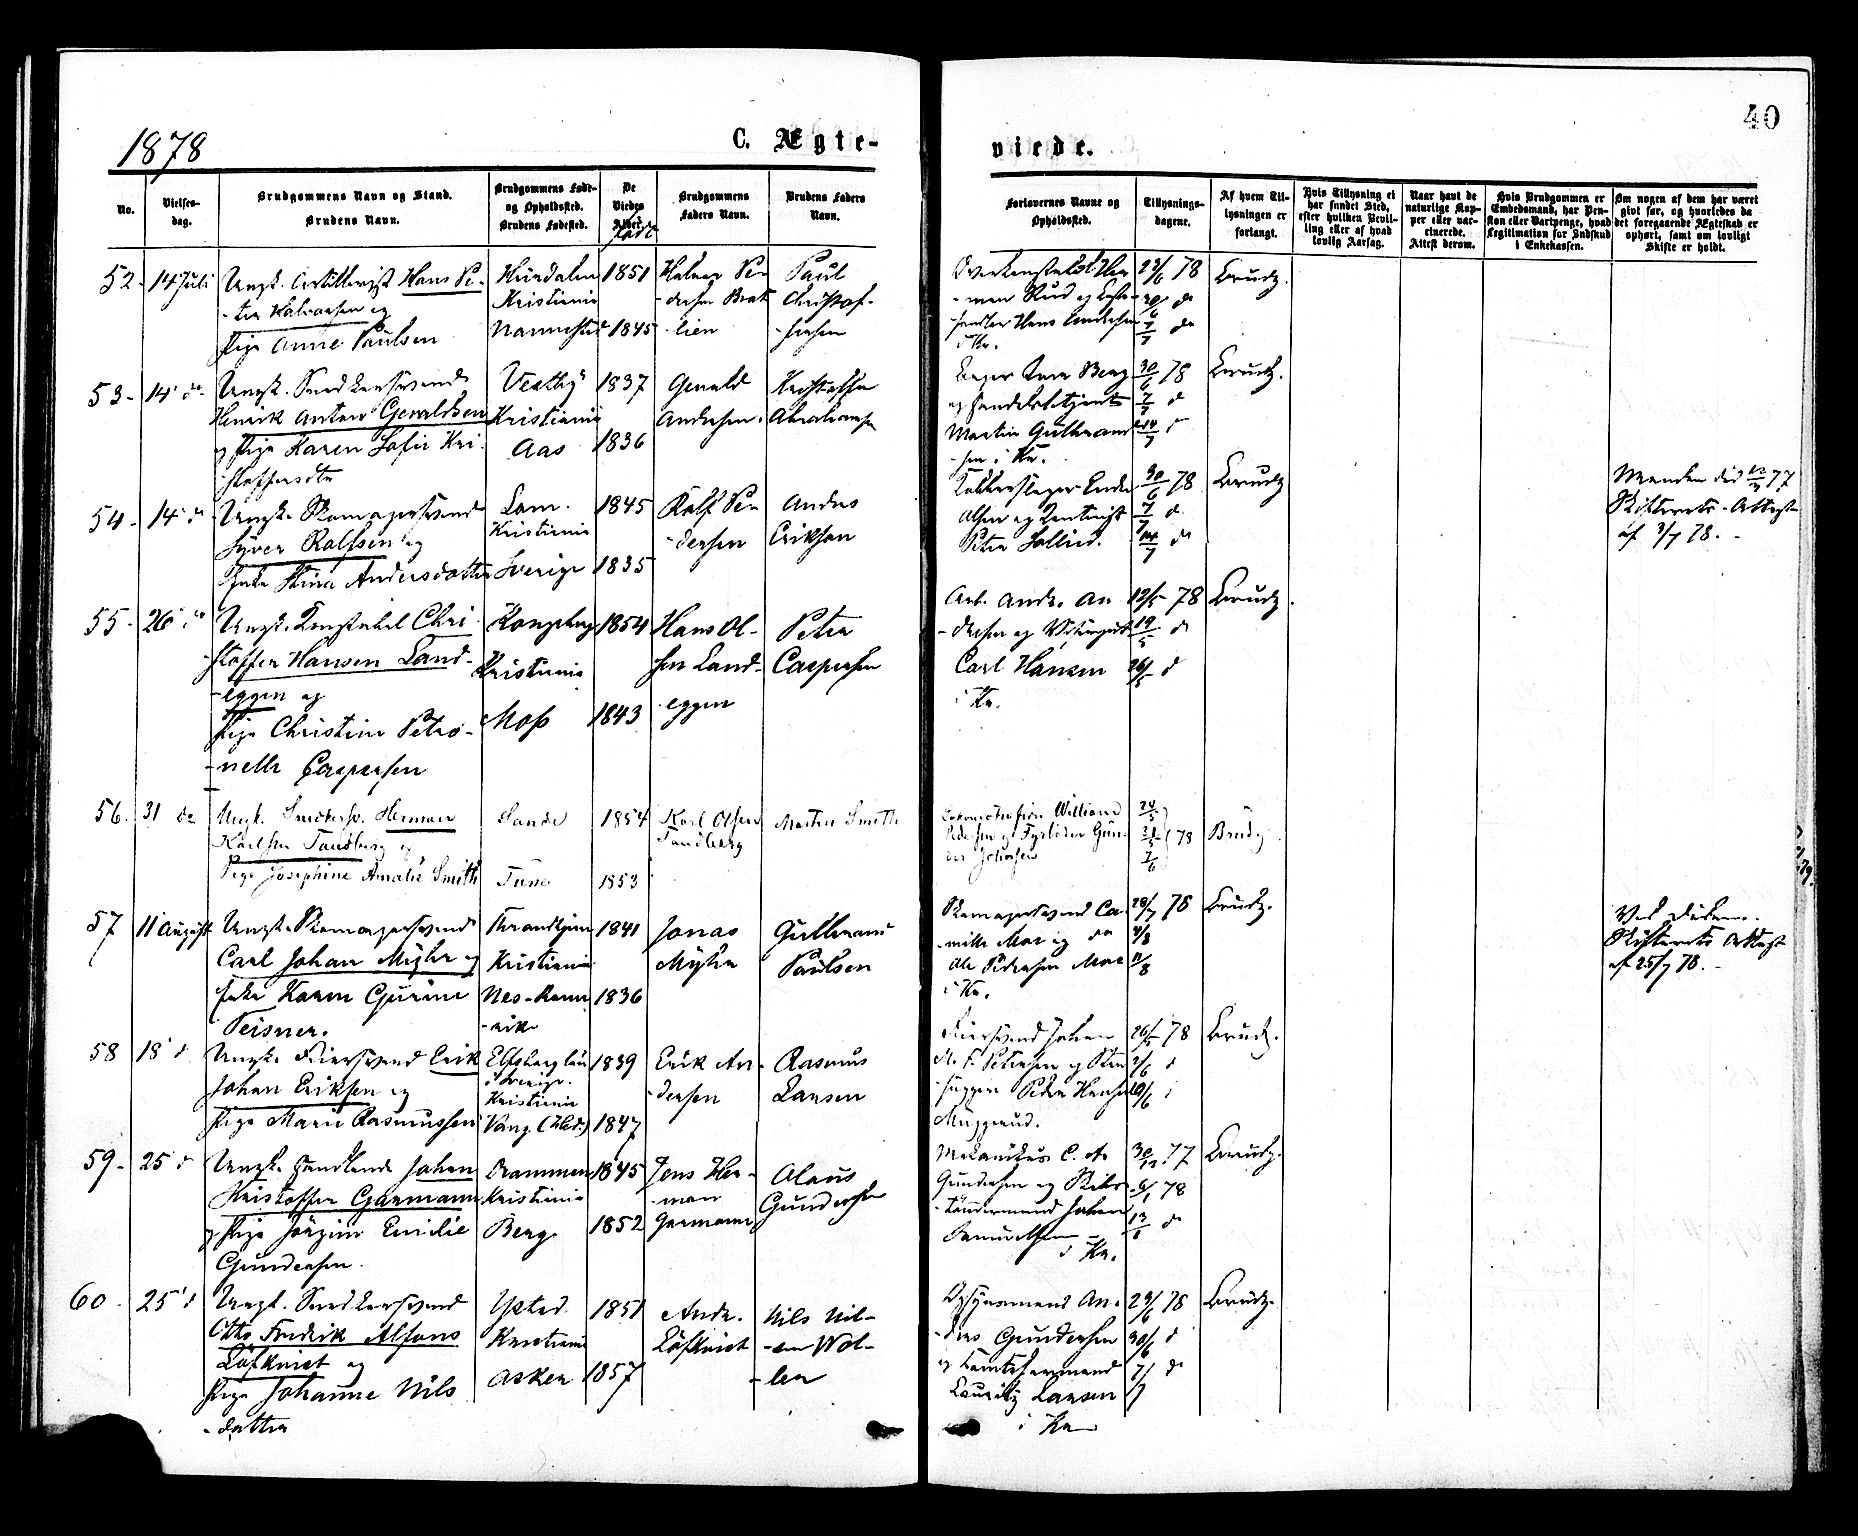 1878
C. Ægte-
viede.
40
No.
Vielses-
dag.
Brudgommens Navn og Stand.
Brudens Navn.
Brudgommens Føde-
og Opholdssted.
Brudens Fødested.
De
Viedes
Alder.
født
Brudgommens
Faders Navn.
Brudens Faders
Navn.
Forlovernes Navne og
Opholdssted.
Tillysnings-
dagene.
Af hvem Til-
lysningen er
forlangt.
Hvis Tillysning ei
har fundet Sted,
efter hvilken Bevil-
ling eller af hvad
lovlig Aarsag.
Naar havt de
naturlige Kop-
per eller var-
cinerede.
Attest derom.
Hvis Brudgommen er
Embedsmand, har Pen-
sion eller Vartpenge, hvad
Legitimation for Indskud
i Enkekassen.
Om nogen af dem har været
gift før, og hvorledes da
det foregaaende Ægteskab er
ophørt, samt om lovligt
Skifte er holdt.
52 14 Juli
Ungk. Artillerist Hans Pe-
-ter Halvorsen og
Pige Anne Paulsen
Kristiania
Nannestad
1851
1845
Halvor Pe-
-dersen Brat-
-lien
Paul
Christof-
-fersen
-man Rud og
-handler Hans Andersen
i Kr.
23/6 78
30/6 do
7/7 do
Brudg.
53 14 do
Ungk. Snedkersvend
Henrik Anton Geraldsen
og Pige Karen Sofie Kri-
-stoffersdtr
Vestby
Kristiania
Aas
1837
1836
Gerald
Andersen
Kristoffer
Abrahamsen
Berg
og Handelsbetjent
Martin Gulbrand-
-sen i Kr.
30/6 78
7/7 d
14/7 d
Brudg.
54 14 d
Ungk. Skomagersvend
Syver Rolfsen og
Enke Stina Andersdatter
Lom
Kristiania
Sverige
1845
1835
Rolf Pe-
-dersen
Anders
Erikson
Olsen og
Peter
30/6 78
7/7 d
14/7 do
Brudg
Manden død 77
Skifterets-Attest
af 3/7 78.
55 26 do
Ungk. Konstabel Chri-
-stoffer Hansen Land-
-eggen og
Pige Christine Petro-
-nelle Caspersen
Kongsberg
Kristiania
Moss
1854
1843
Hans Ol-
-sen Land-
-eggen
Peter
Caspersen
Arb. Andr. An-
-dersen og
Carl Hansen
i Kr.
12/5 78
19/5 d
26/5 d
Brudg.
56 31 do
Ungk. Snedkersv. Herman
Karlsen Tandberg og
Pige Josephine Amalie Smith
Sande
Tune
1854
1853
Karl Olsen
Tandberg
Morten Smith
William
Pedersen og Fyrbøder Gun-
der Johnsen
78
Brudg
57 11 August
Ungk. Skomagersvend
Carl Johan Myhr og
Enke Karen Gurine
Teisner.
Throndhjem
Kristiania
Nes-Rome-
-rike
1841
1836
Jonas
Myhr
Gulbrand
Paulsen
Skomagersvend Ca-
-mille Moe og do
Ole Pedersen Moe
i Kr.
28/7 78
4/8
11/8
Brudg.
Ved Døden.
Skifterets Attest
af 25/7 78.
58 18 d
Ungk. Feiersvend Erik
Johan Eriksen og
Pige Marie Rasmussen
Elfsborg län
i Sverige.
Kristiania
Vang (Hed.)
1839
1847
Erik An-
-dersen
Rasmus
Larsen
Feiersvend Johan
26/5 78
2/6 d
10/6
Brudg.
59 25 d
Ungk. Handlende Johan
Kristoffer Garmann
og Pige Jørgine Emilie
Gundersen
Drammen
Kristiania
Berg
1845
1852
Jens Her-
-man
Garmann
Olaus
Gundersen
Mekanikus C. A.
Gundersen og
Johan
i Kr.
30/12 77
6/1 78
13/1 do
Brudg.
60 25 d
Ungk. Snedkersvend
Otto Fredrik Alfons
Löfkvist og
Pige Johanne Nils-
-datter
Ystad
Kristiania
Asker
1851
1857
Andr.
Löfkvist
Nils Nil-
-sen Wol-
-len
Opsynsmand An-
-dres Gundersen
og
Lauritz Larsen
i Kr
23/6 78
30/6 d
7/7 do
Brudg.